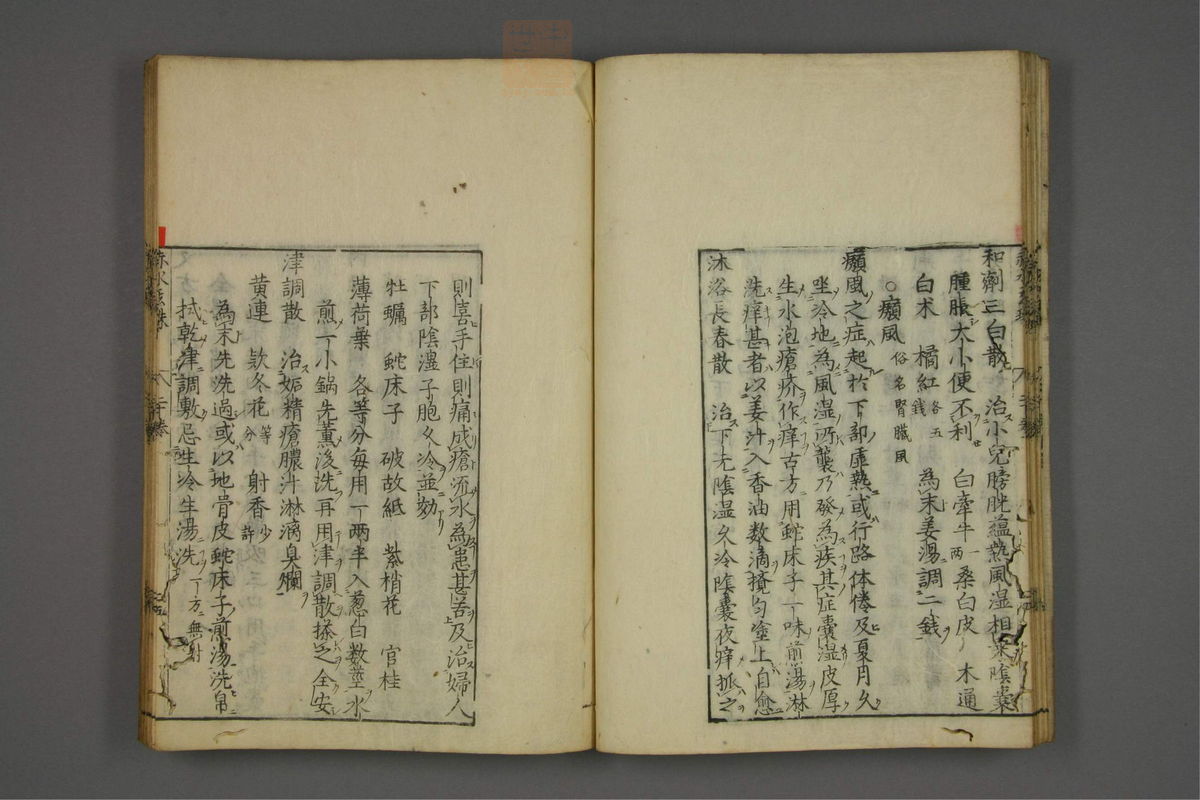 和劑三白散 治小兒膀胱蘊熱風湿相乘陰囊
腫脹大小便不利 白牽牛一両 桑白皮 木通
白术 橘紅各五錢 為末姜湯調二錢
○癩風俗名腎臟風
癩風之症起於下部虛熱或行路体倦及夏月久
坐冷地為風湿所襲乃發為疾其症囊湿皮厚
生水泡瘡疥作痒古方用蛇床子一味煎湯淋
洗痒甚者以姜汁入香油数滴攪匀塗上自愈
沐浴長春散 治下元陰湿久冷陰囊夜痒抓之
則喜手住則痛成瘡流水為患甚苦及治婦人
下部陰湿子胞久冷並効
牡蠣 蛇床子 破故紙 紫梢花 官桂
薄荷葉 各等分毎用一兩半入葱白数莖水
煎一小鍋先薰後洗再用津調散搽之全安
津調散 治妬精瘡膿汁淋漓臭爛
黄連 欵冬花等分 射香少許
為末先洗過或以地骨皮蛇床子煎湯洗帛
拭乾津調敷忌生冷生湯洗一方無射